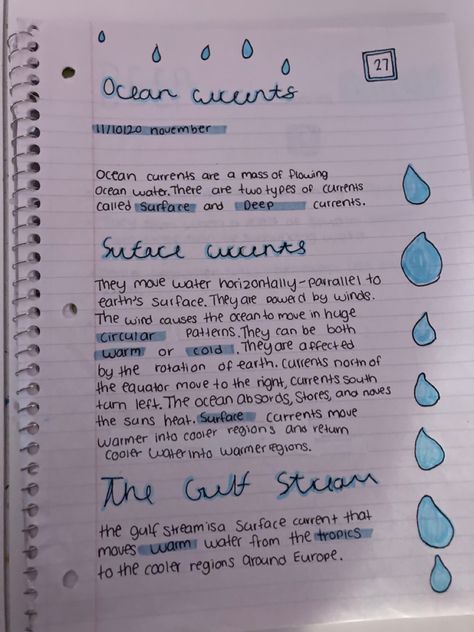 27
Ocean currents
11/10/20 november
Ocean currents are a mass of flowing
ocean water. There are two types of currents
called Surface and Deep currents.
Surface currents
They move water horizontally - parrallel to
earth's surface. They are powerd by winds.
The wind causes the ocean to move in huge
circular patterns. They can be both
warm or cold. They are affected
by the rotation of earth. Currents north of
the equator move to the right, currents south
turn left. The ocean absords, Stores, and moves
the suns heat. Surface currents move
warmer into cooler regions and return
cooler water into warmer regions.
The Gulf Stream
the gulf stream is a surface current that
moves warm water from the tropics
to the cooler regions around Europe.